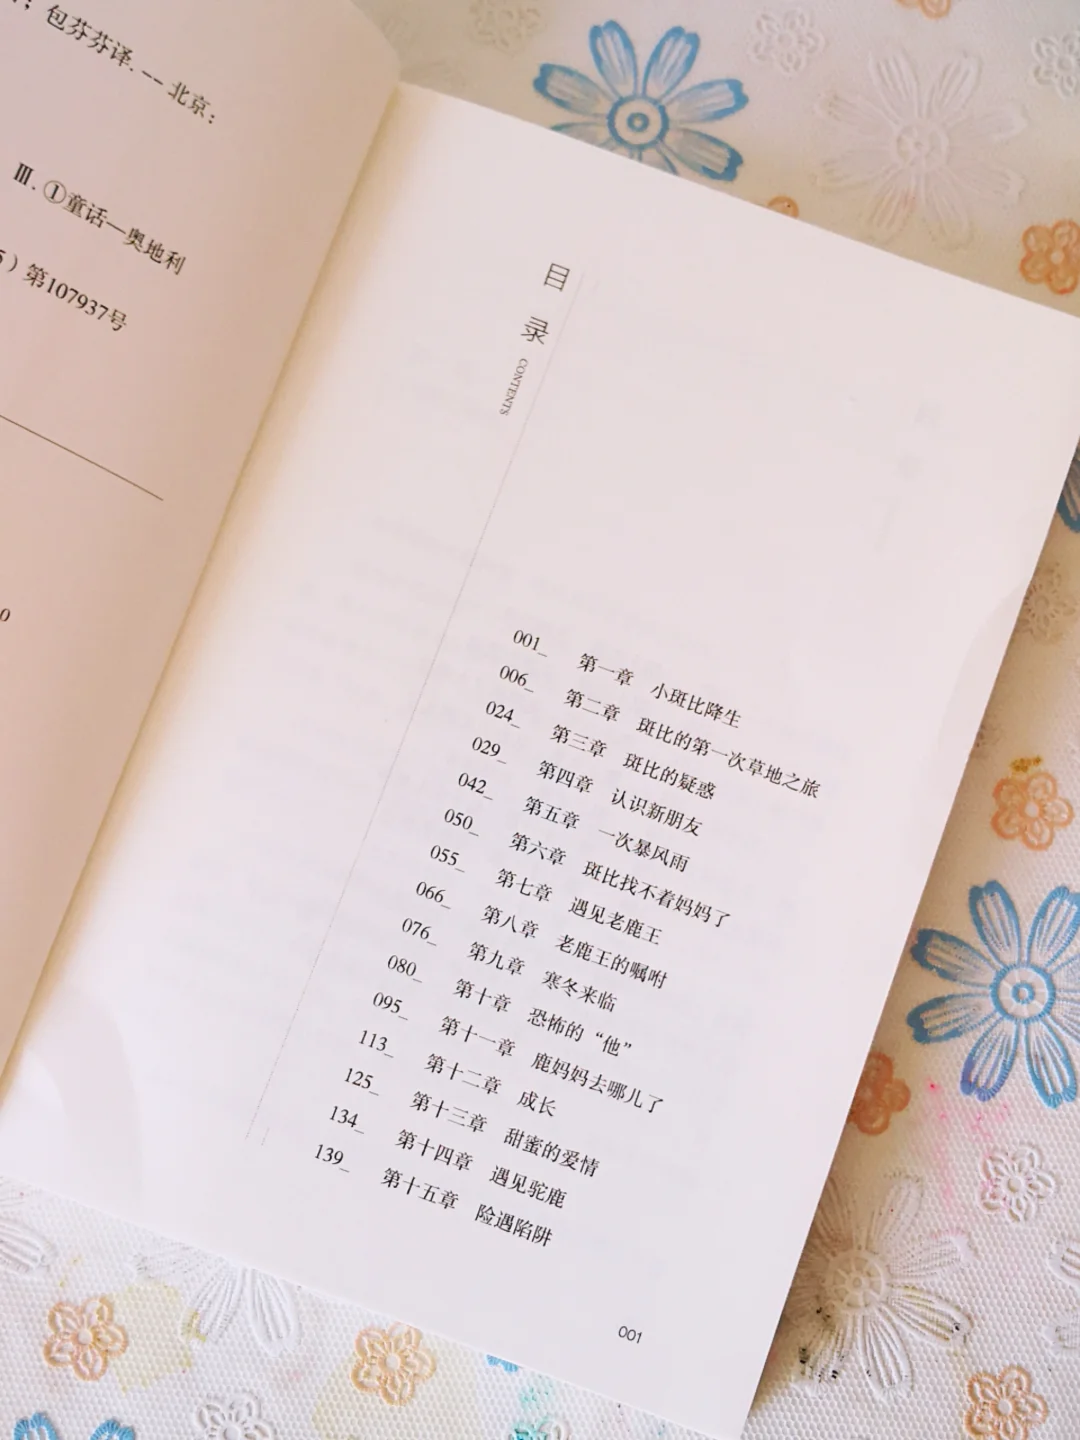 ；包芬芬译. -- 北京：
Ⅲ. ①童话—奥地利
）第107937号
0
目录
CONTENTS
001_ 第一章 小斑比降生
006_ 第二章 斑比的第一次草地之旅
024_ 第三章 斑比的疑惑
029_ 第四章 认识新朋友
042_ 第五章 一次暴风雨
050_ 第六章 斑比找不着妈妈了
055_ 第七章 遇见老鹿王
066_ 第八章 老鹿王的嘱咐
076_ 第九章 寒冬来临
080_ 第十章 恐怖的“他”
095_ 第十一章 鹿妈妈去哪儿了
113_ 第十二章 成长
125_ 第十三章 甜蜜的爱情
134_ 第十四章 遇见驼鹿
139_ 第十五章 险遇陷阱
001